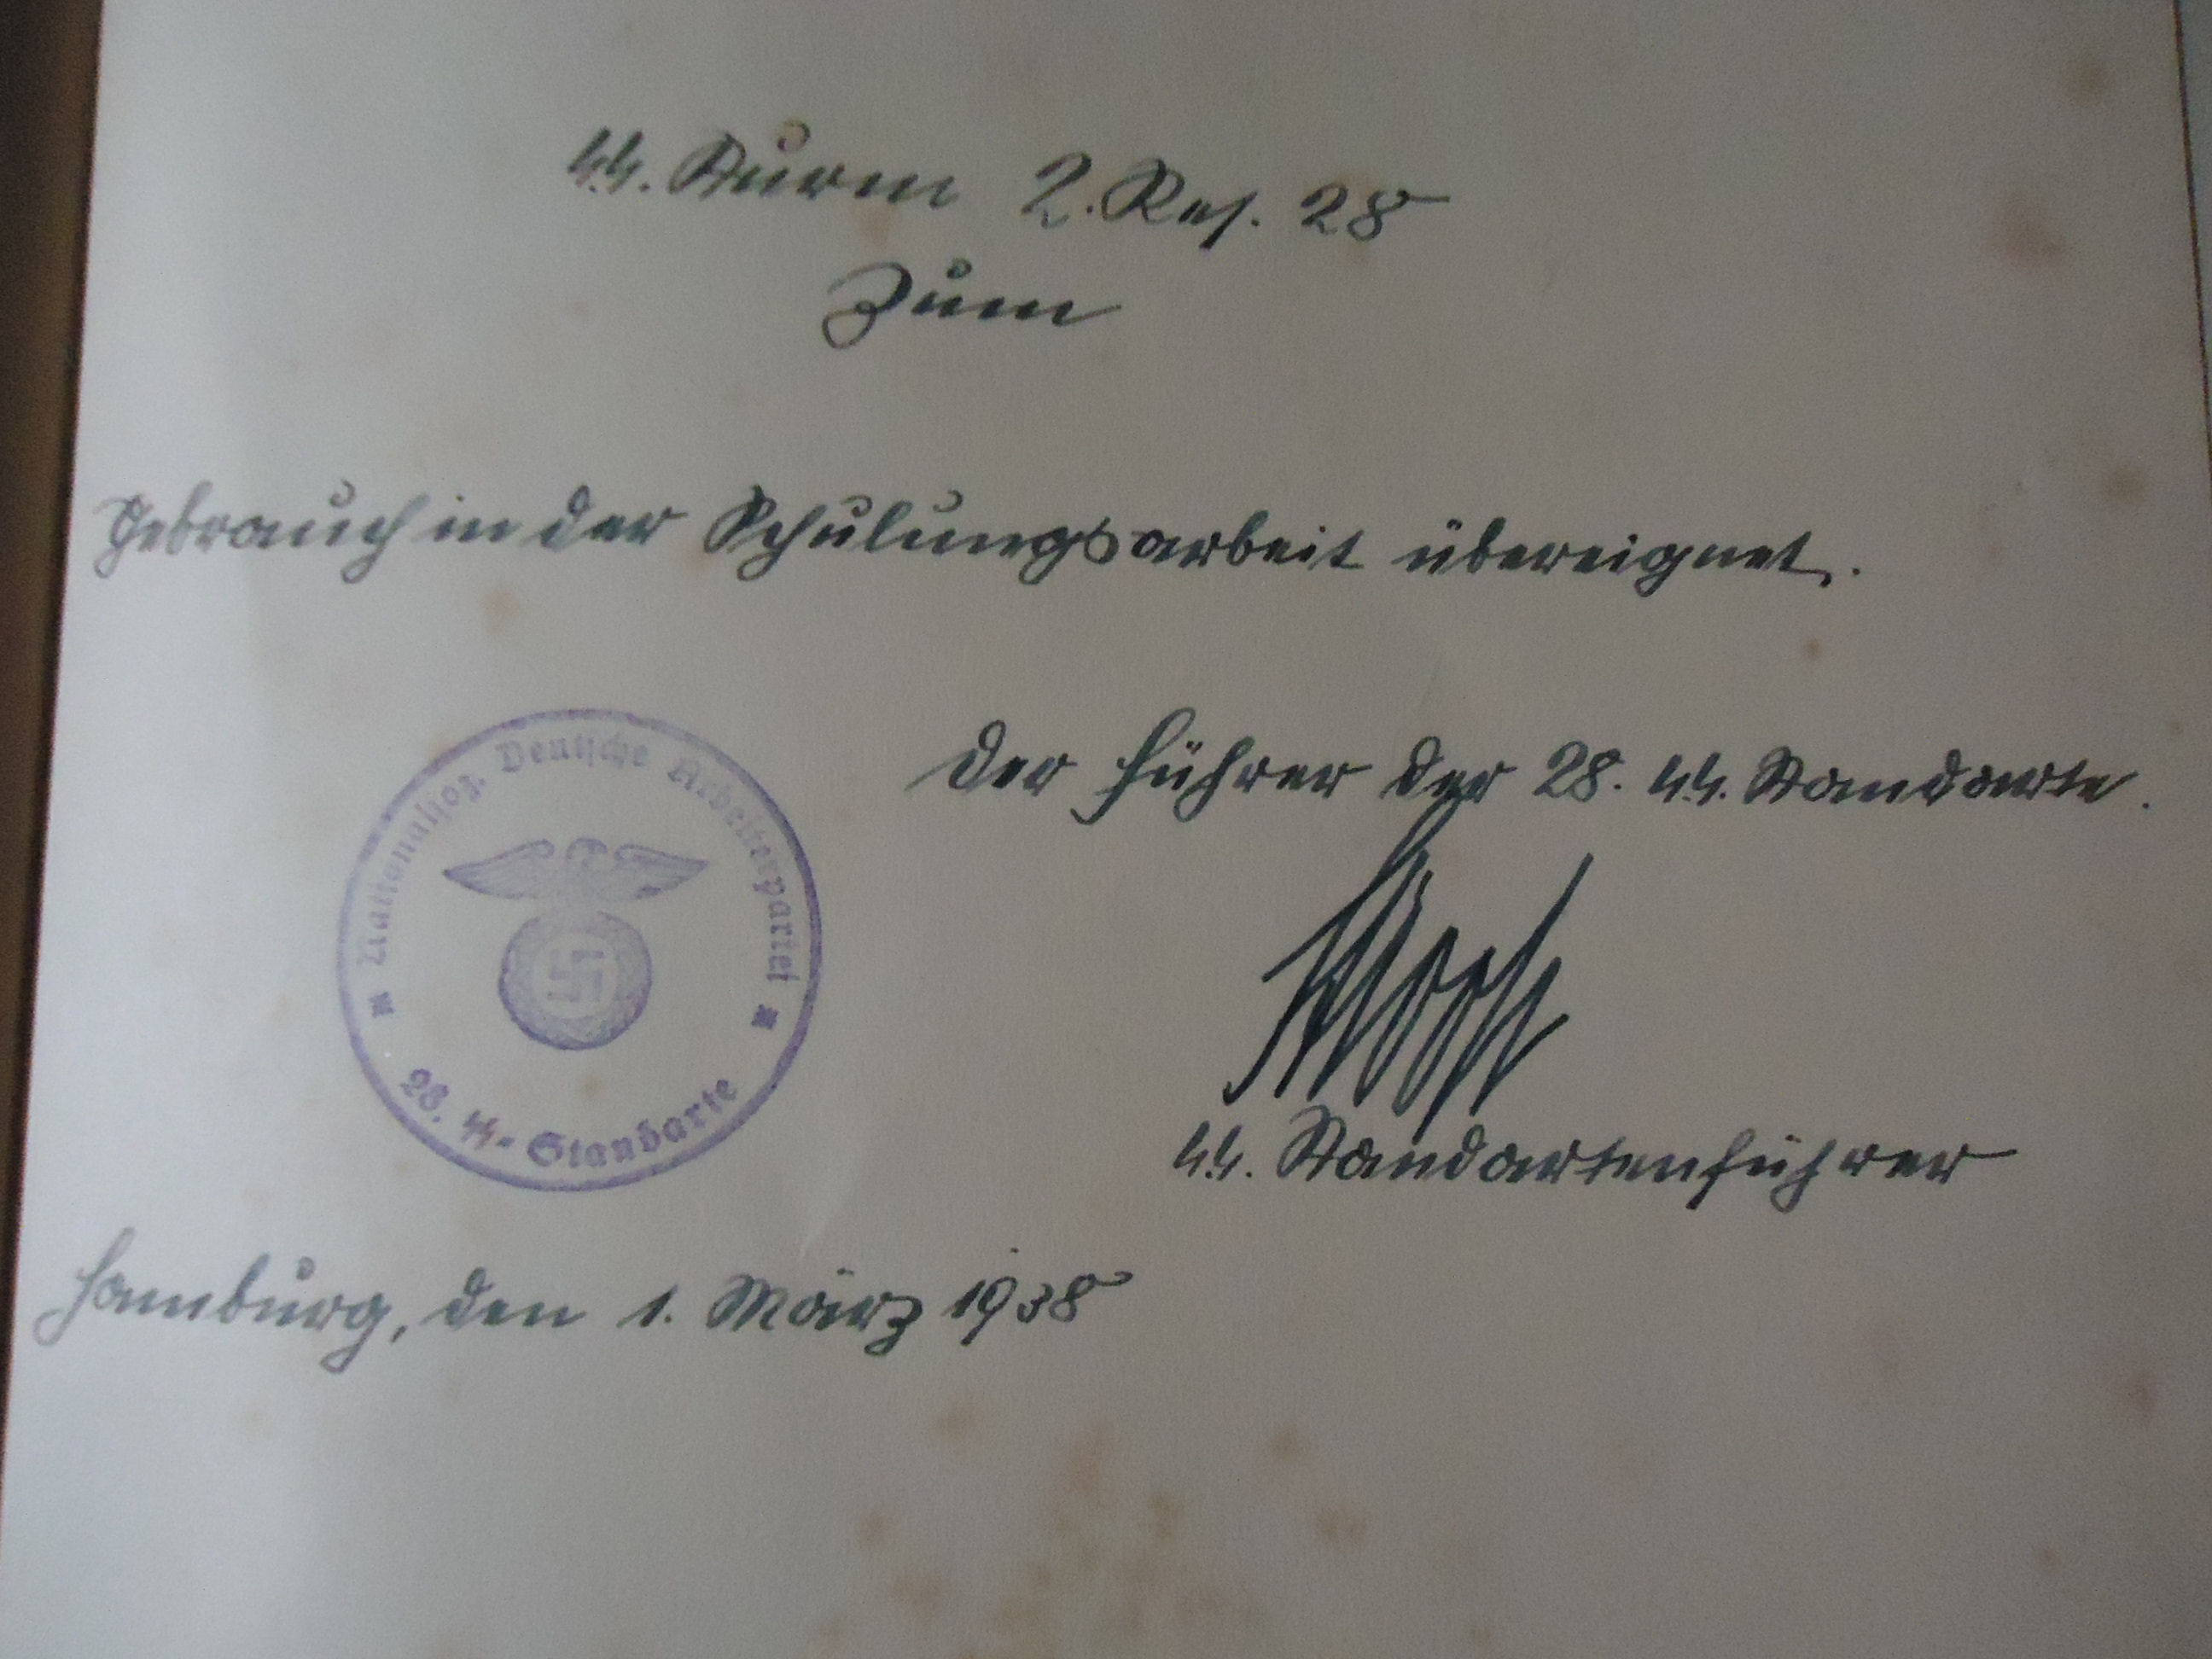 SS. Sturm 2. Res. 28
Zum
Gebrauch in der Schulungsarbeit übereignet.
Der Führer der 28. SS. Standarte.
SS. Standartenführer
Nationalsoz. Deutsche Arbeiterpartei
28. SS-Standarte
Hamburg, den 1. März 1938